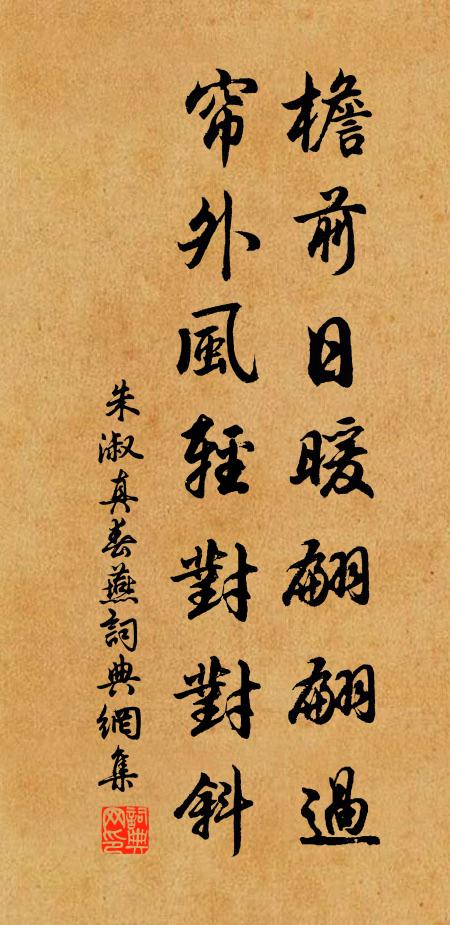 檐前日暖翩翩過
帘外風輕對對斜
朱淑真春燕詞典網集
詞典网印